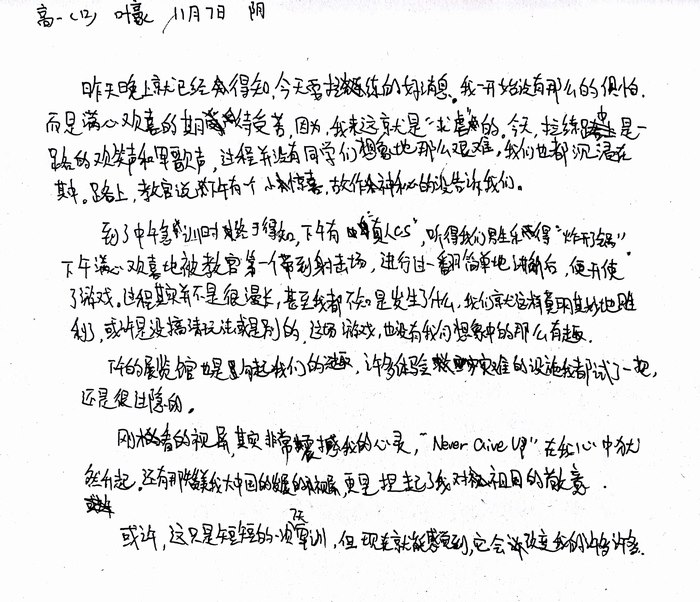 高一(12) 叶豪 11月7日 阴
昨天晚上就已经得知,今天要拉练的好消息。我一开始没有那么的惧怕,
而是满心欢喜的期待着,因为,我来这就是"求虐"的。今天,拉练路上是一
路的欢笑声和军歌声,过程并没有同学们想象地那么艰难,我们也都沉浸在
其中。路上,教官说下午有个小惊喜,故作神秘的没告诉我们。
到了中午军训时终于得知,下午有"真人CS",听得我们是乐得"炸开了锅"
下午满心欢喜地被教官第一个带到射击场,进行过一翻简单地讲解后,便开使
了游戏。过程其实并不是很漫长,甚至我都不知是发生了什么,我们就这样莫明其妙地胜
利了,或许是没搞清玩法或是别的,这场游戏,也没有我们想象中的那么有趣.
下午的展览馆也是勾起我们的趣,许多体验灾难的设施我都试了一把,
还是很过隐的。
刚才看的视屏,其实非常震撼我的心灵,"Never Give Up"在我心中犹
然升起。还有那我大中国的视屏,更是提起了我对祖国的敬意.
或许,这只是短短的一次7天军训,但现在就能感觉到,它会改变我的许多许多.